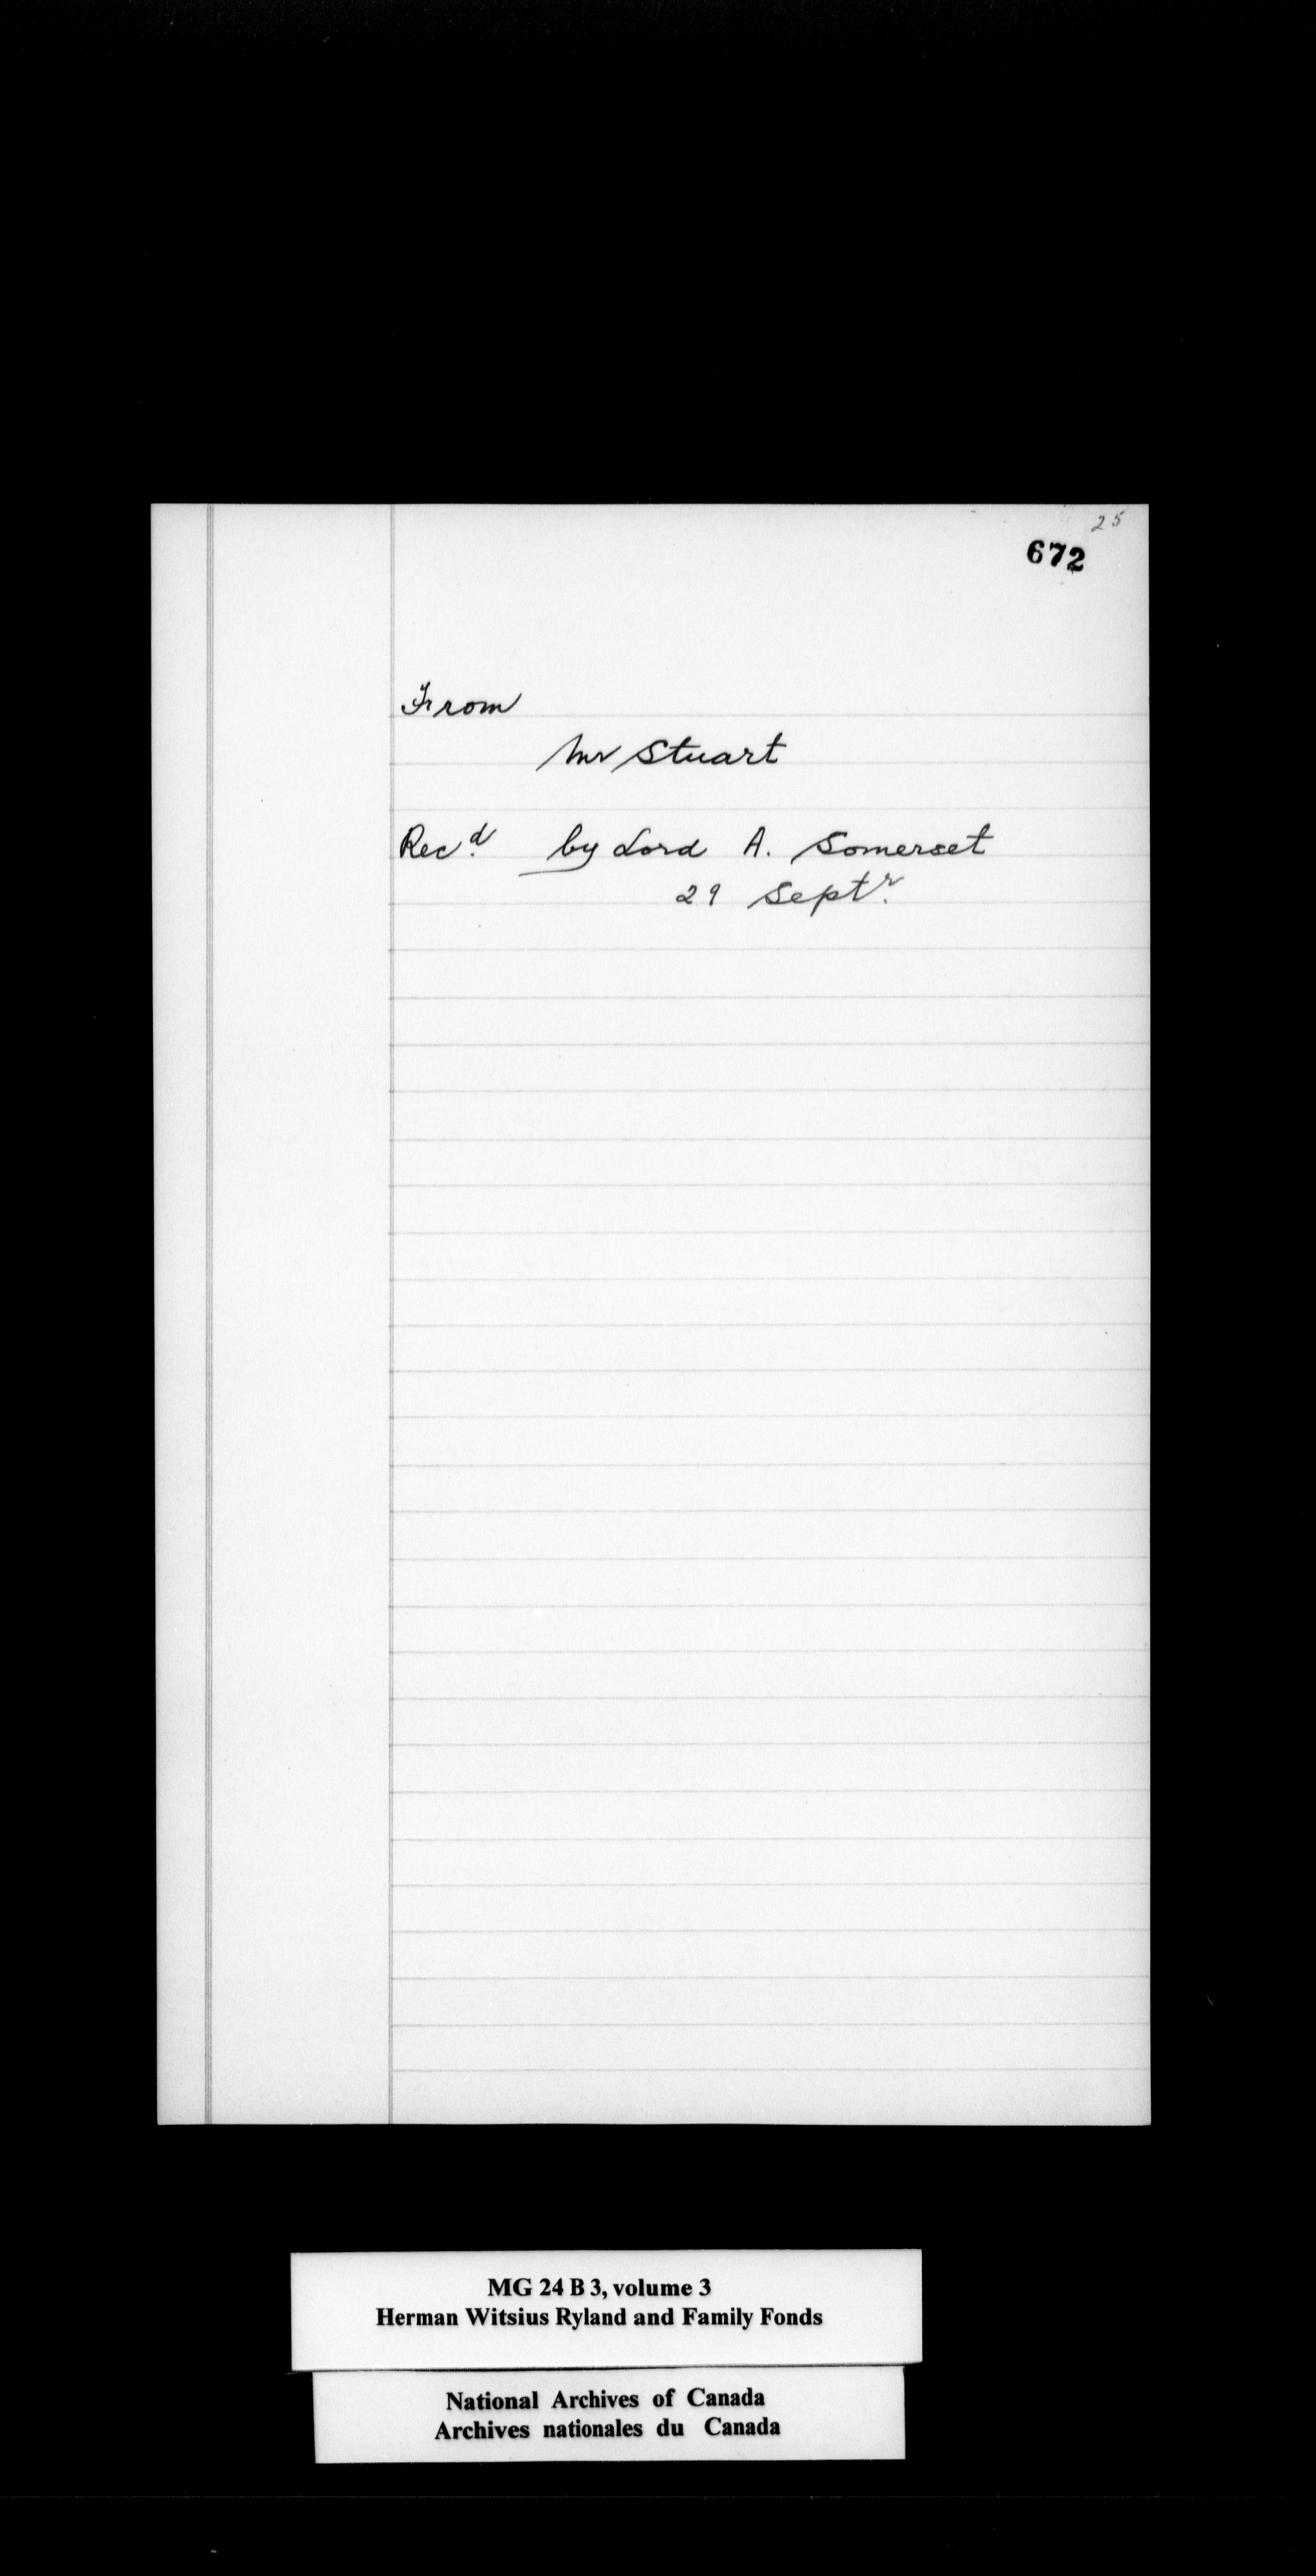 25
672
From
Mr Stuart
Rec.d by Lord A. Somerset
29 Septr.
MG 24 B 3, volume 3
Herman Witsius Ryland and Family Fonds
National Archives of Canada
Archives nationales du Canada